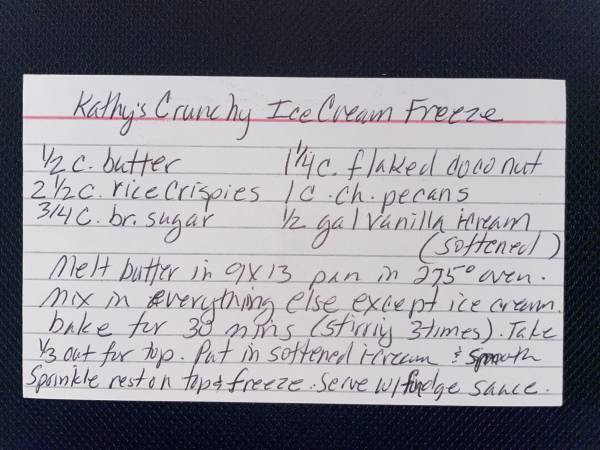 Kathy's Crunchy Ice Cream Freeze
1/2 c. butter 1 1/4 c. flaked coconut
2 1/2 c. rice crispies 1 c. ch. pecans
3/4 c. br. sugar 1/2 gal vanilla icream
(softened)
Melt butter in 9x13 pan in 275° oven.
Mix in everything else except ice cream.
bake for 30 mins (stirring 3 times). Take
1/3 out for top. Put in softened icream & smooth
Sprinkle rest on top & freeze. Serve w/ fudge sauce.